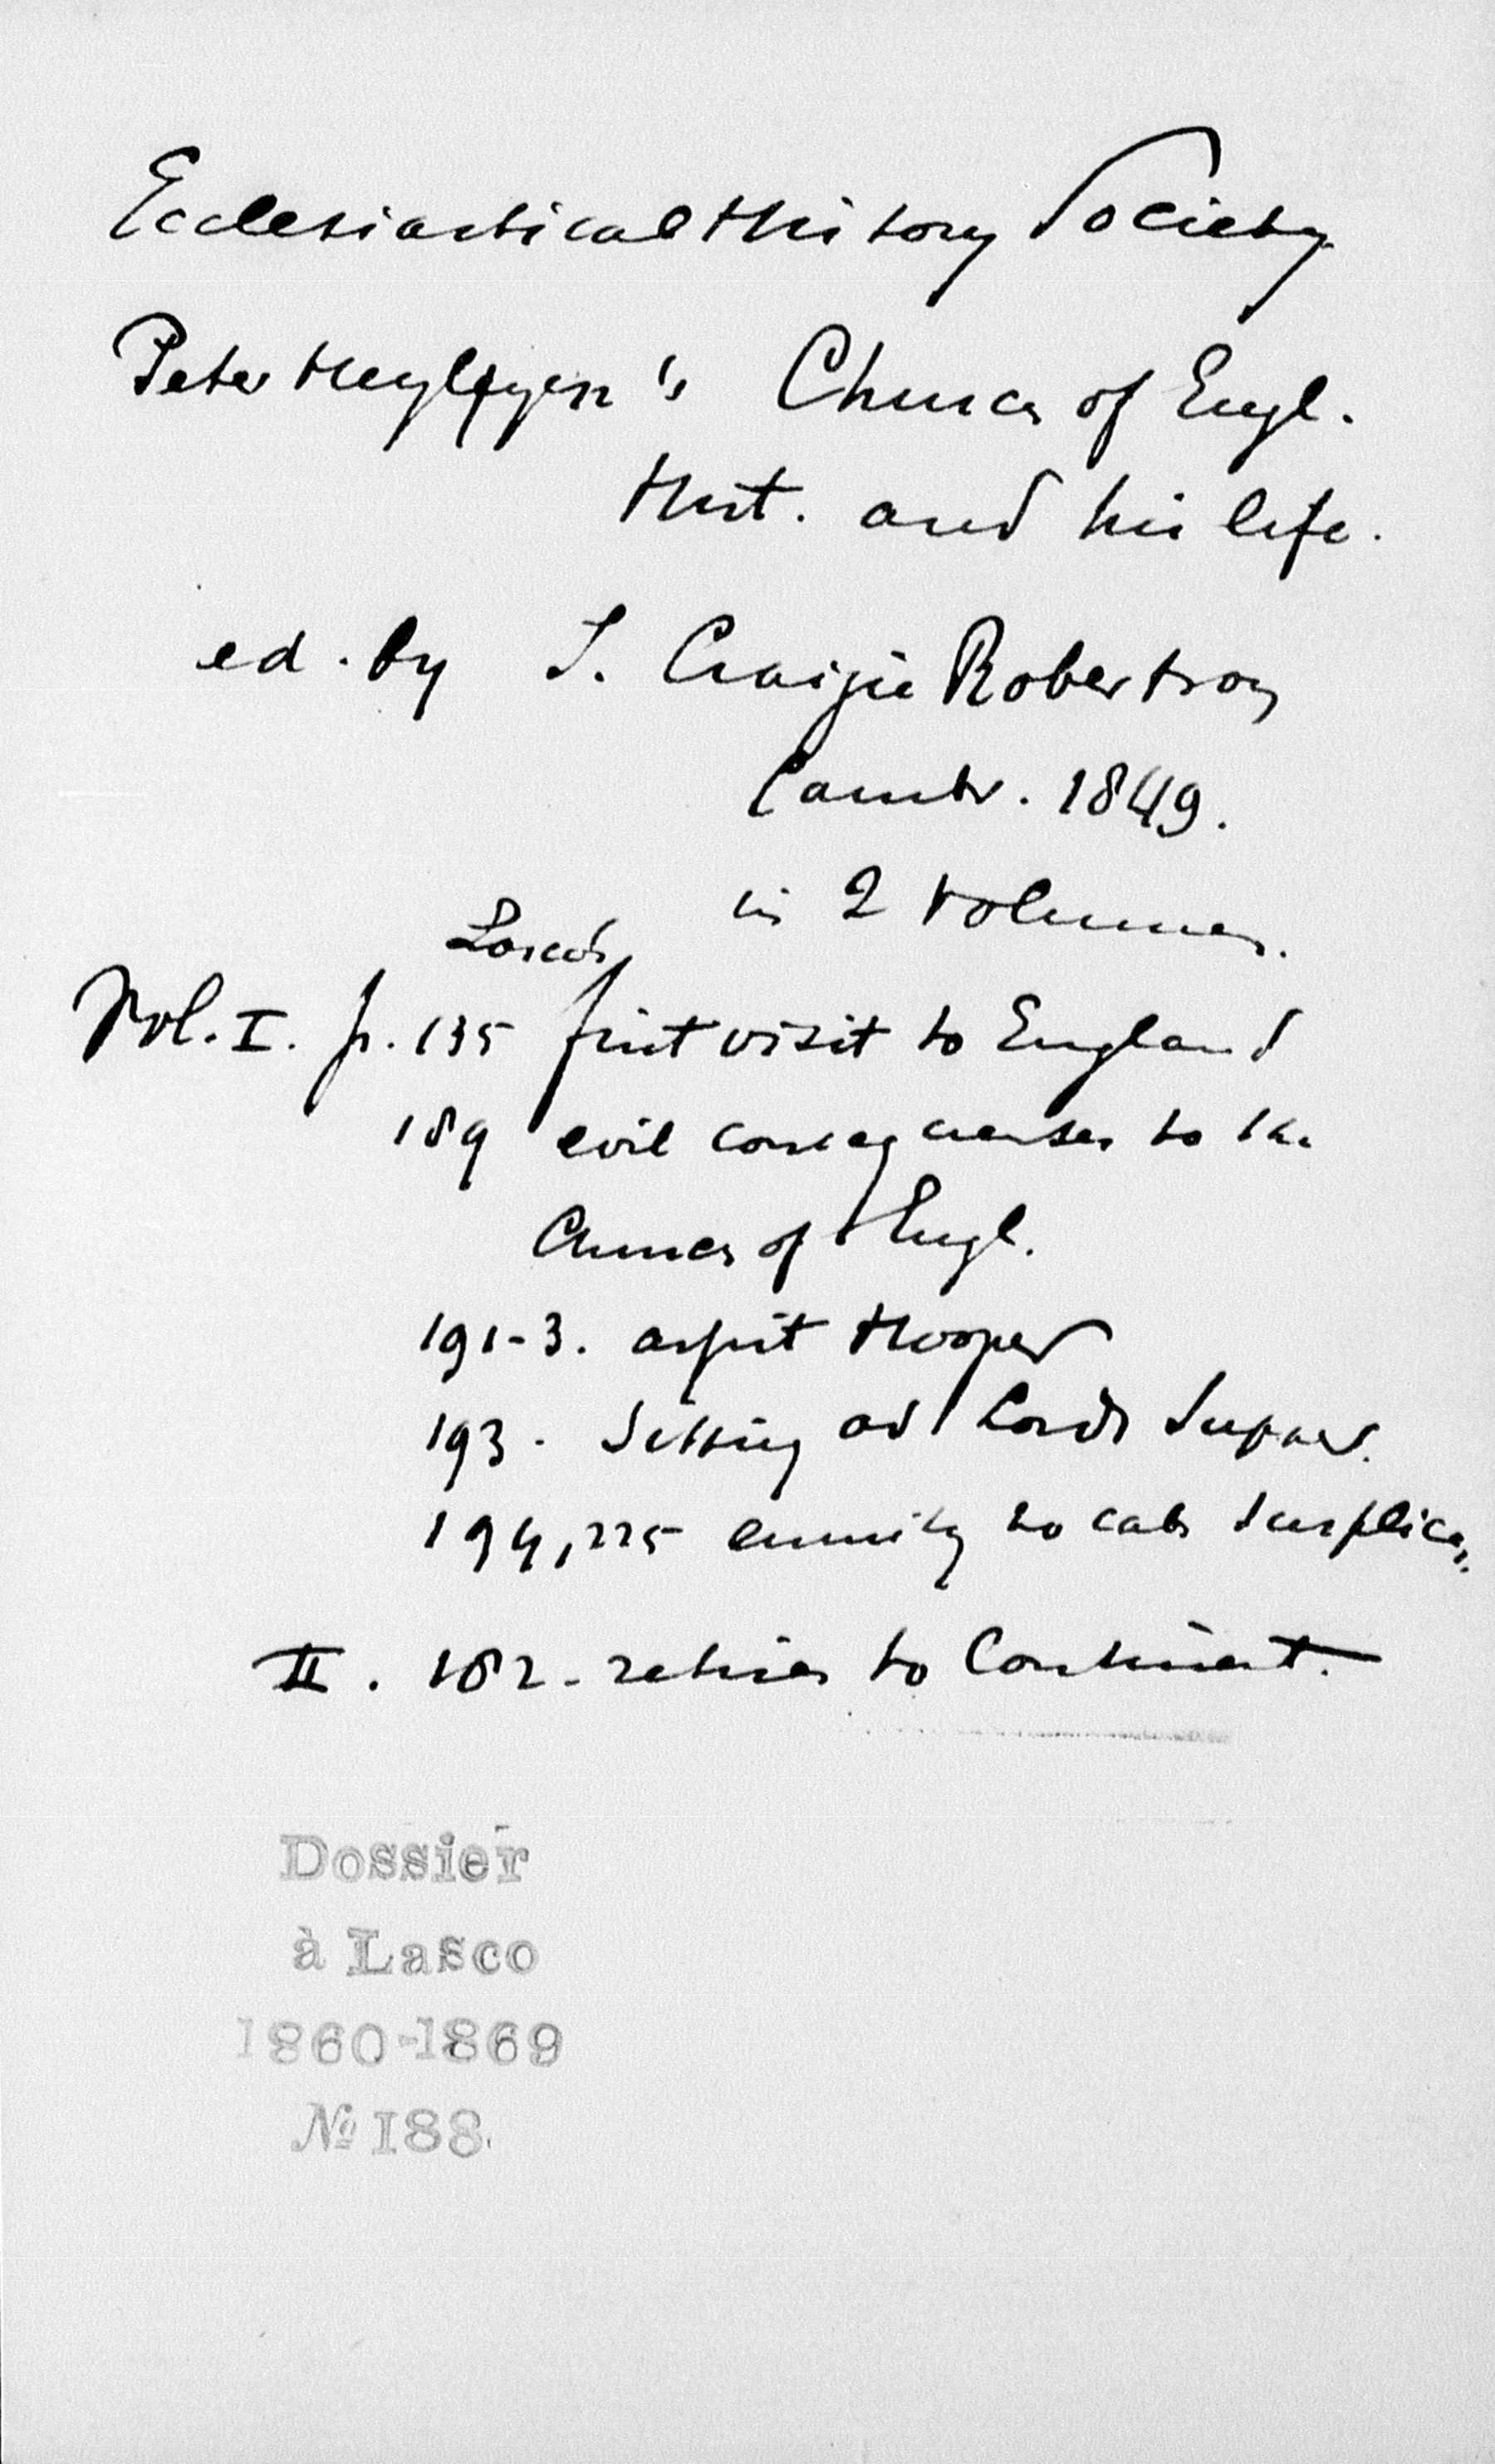 Ecclesiastical History Society
Peter Heylyn's Church of Engl.
Hist. and his life.
ed. by J. Craigie Robertson
Cambr. 1849.
in 2 volumes.
Lasco's
Vol. I. p. 135 first visit to England
189 evil consequenses to the
Church of Engl.
191-3. assist Hooper
193. Sitting ad Lords Supper.
194, 225 enmity to caps surplices.
II. 182 - retires to Continent.
Dossier
à Lasco
1860-1869
№ 188.